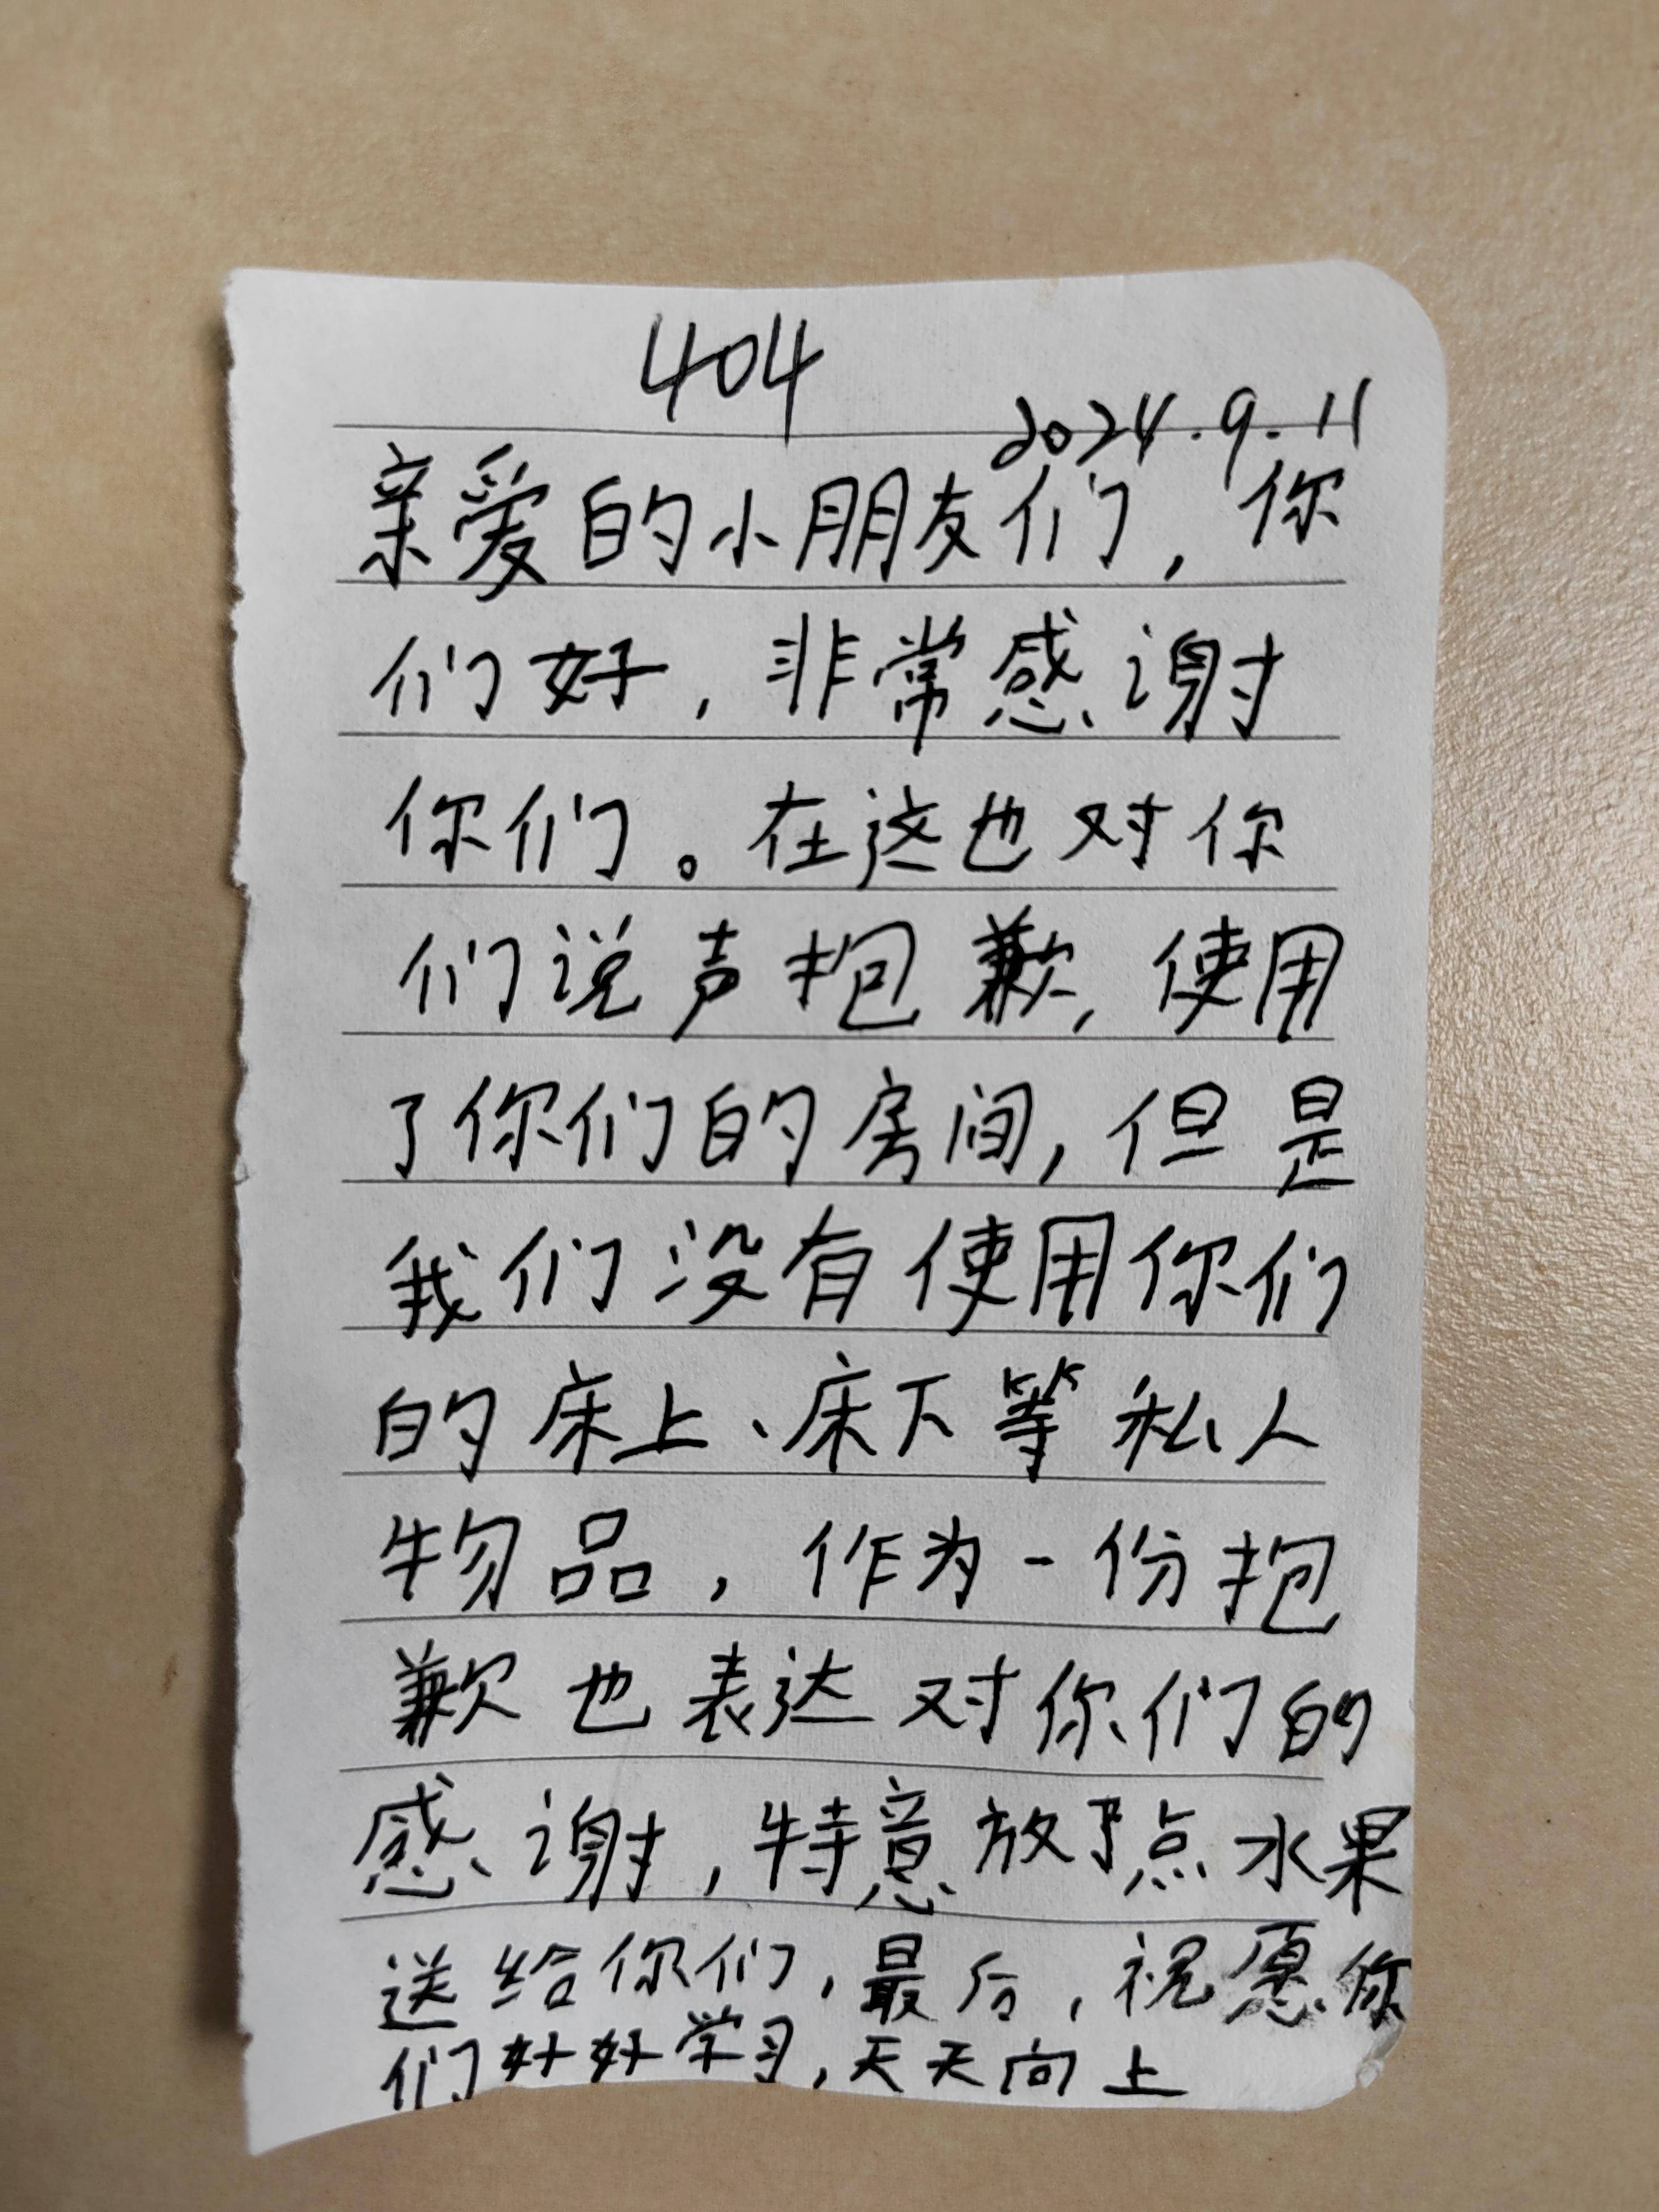 404
2024.9.11
亲爱的小朋友们，你
们好，非常感谢
你们。在这也对你
们说声抱歉，使用
了你们的房间，但是
我们没有使用你们
的床上、床下等私人
物品，作为一份抱
歉也表达对你们的
感谢，特意放了点水果
送给你们，最后，祝愿你
们好好学习，天天向上